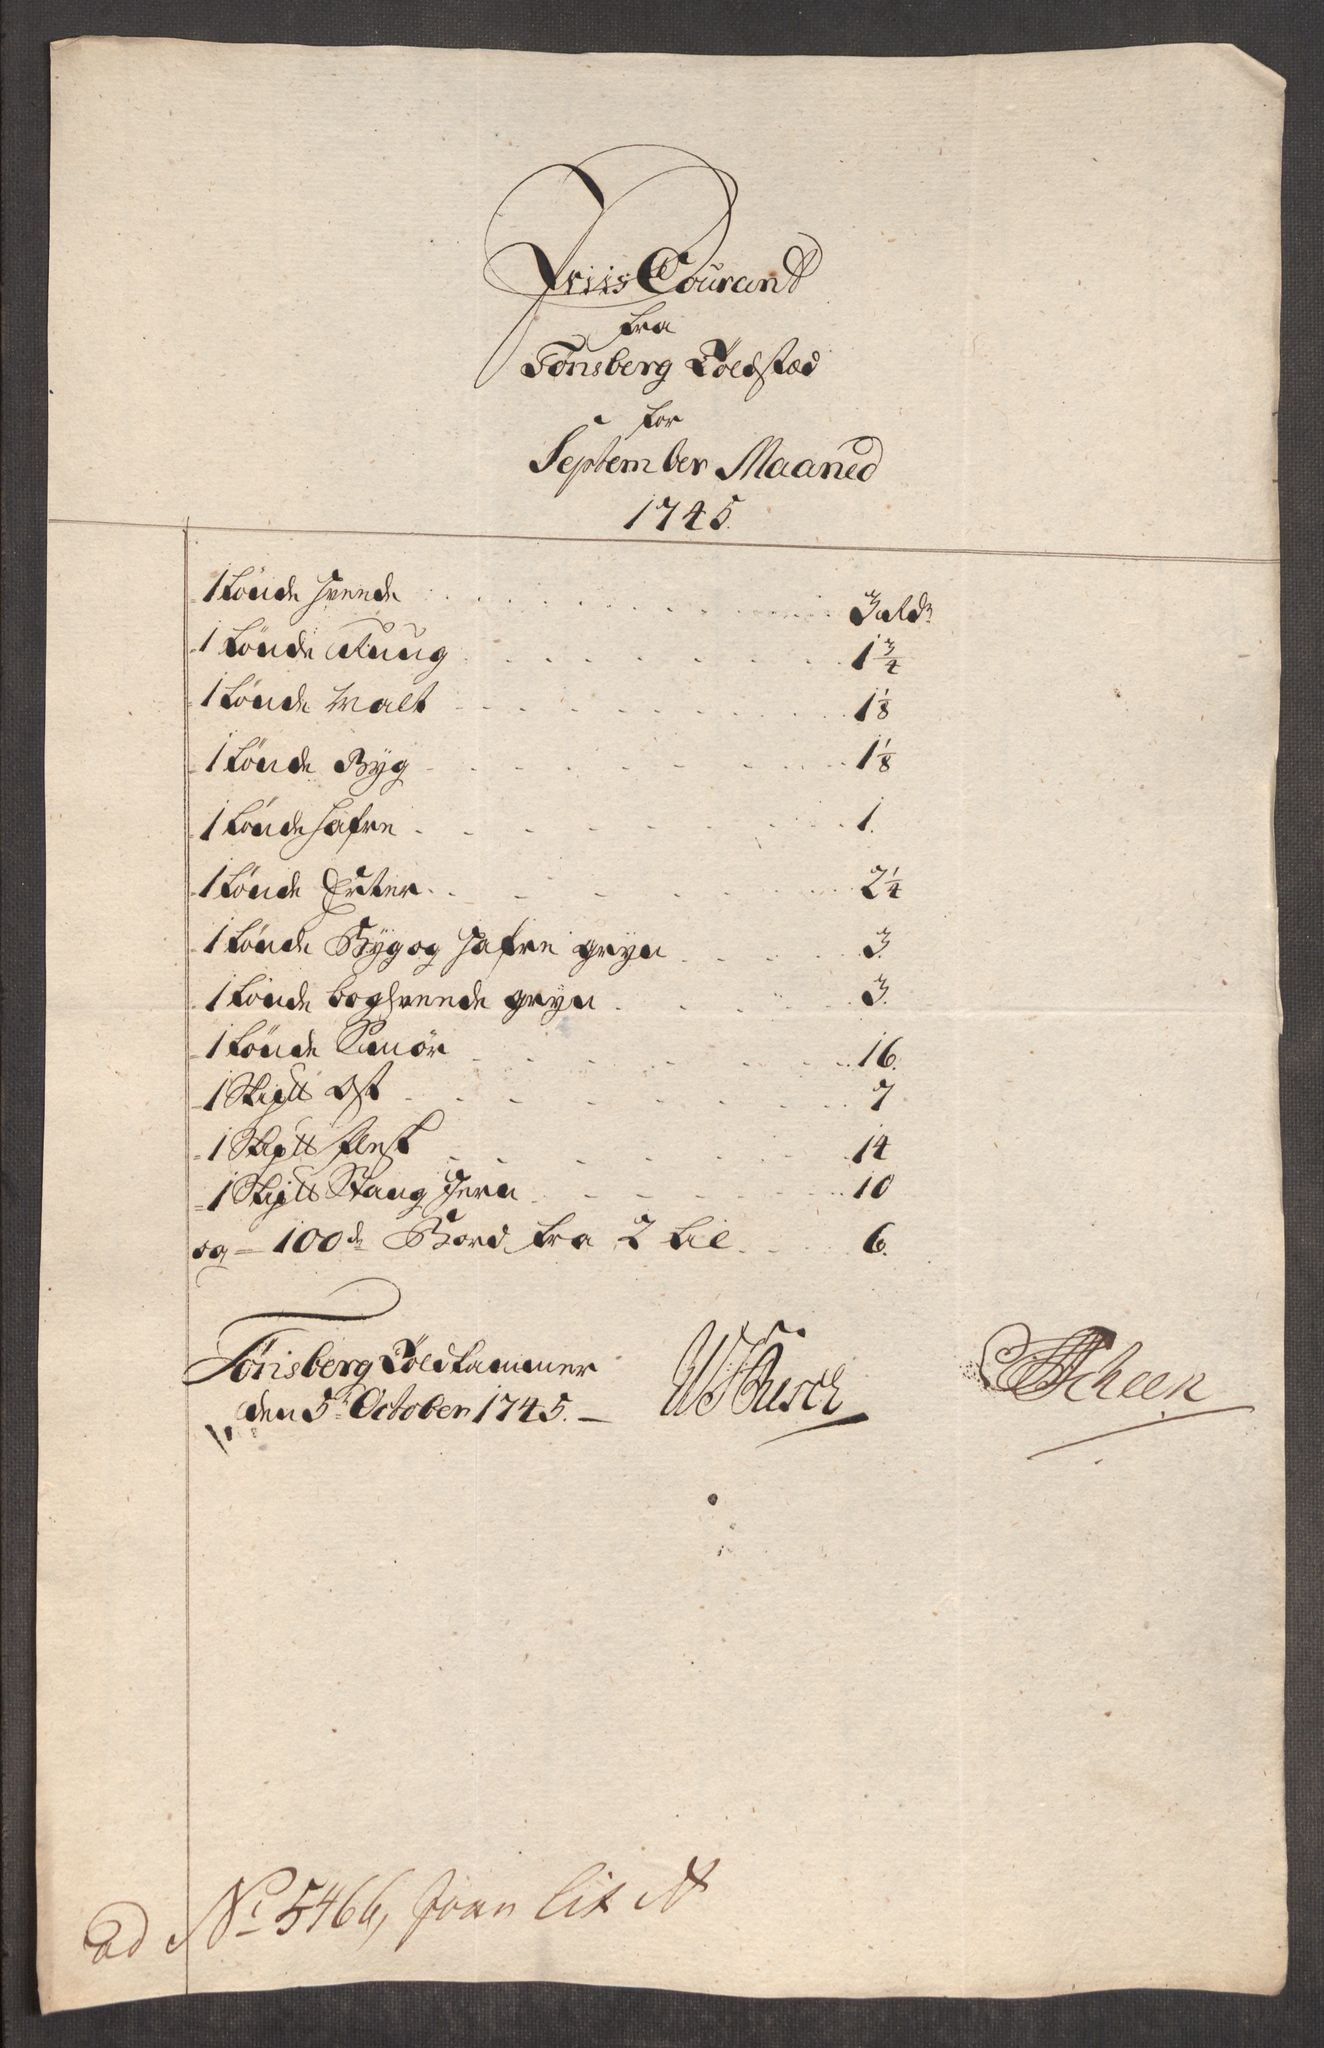 Priis Courant
fra
Tønsberg Toldstæd
for
September Maaned
1745.
1 tønde Hvede . . . 3 Rdr
1 tønde Ruug . . . 1 3/4
1 tønde Malt . . . 1 1/8
1 tønde Byg . . . 1 1/8
1 tønde Hafre . . . 1.
1 tønde Erter . . . 2 1/4
1 tønde Byg og Hafre gryn . . . 3.
1 tønde boghvede gryn . . . 3.
1 tønde Smør . . . 16.
1 Skip℔ Ost . . . 7
1 Skip℔ flesk . . . 14
1 Skip℔ Stang Jern . . . 10
og - 100de Bord fra 2 til . . . 6.
Tønsberg Toldkammer
den 5te October 1745.
Scheen
ad No 5466, Journ lit A